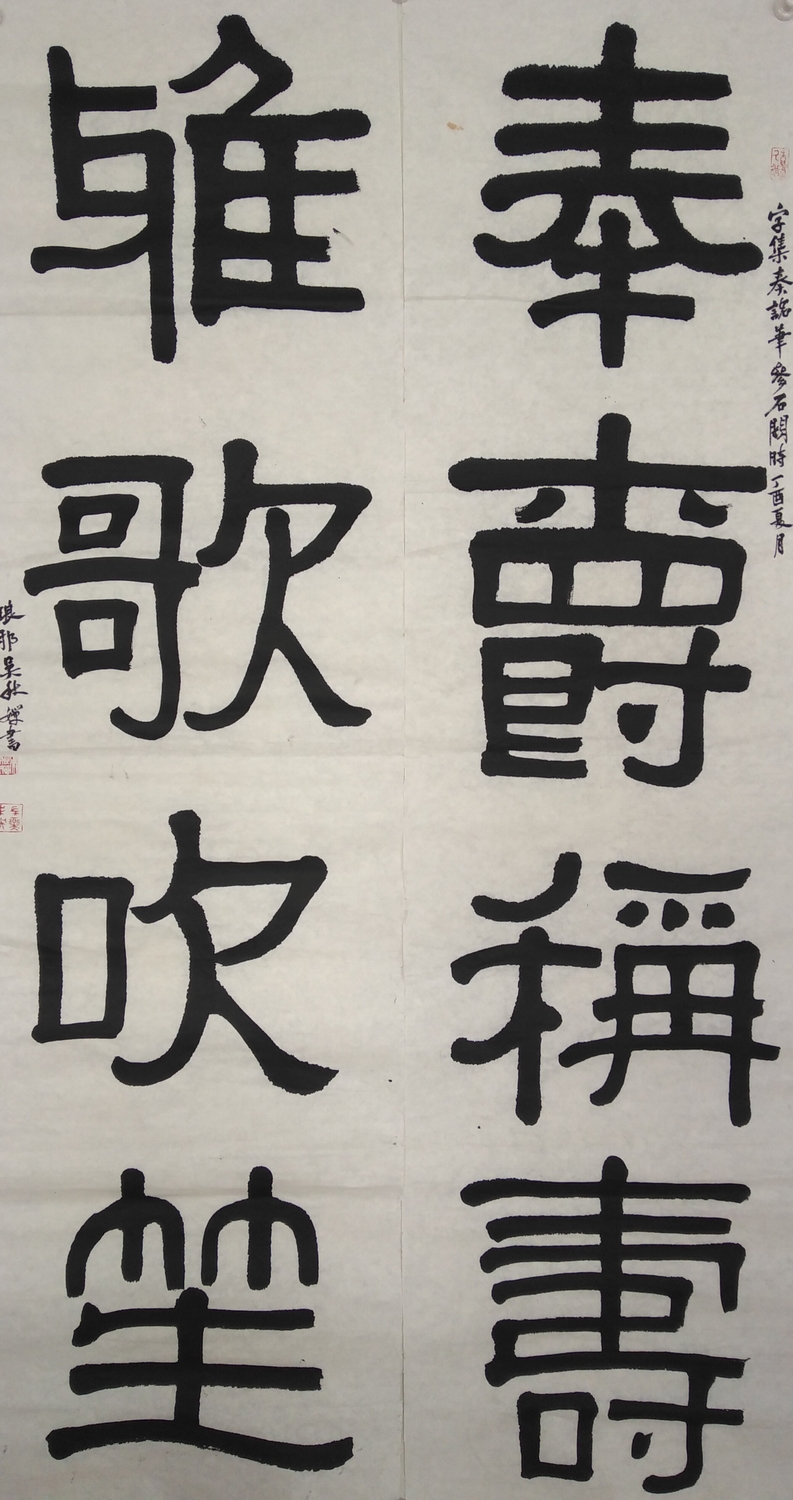 字集秦詔筆參石闕時丁酉夏月
奉爵稱壽
雅歌吹笙
琅耶吴秋禪書